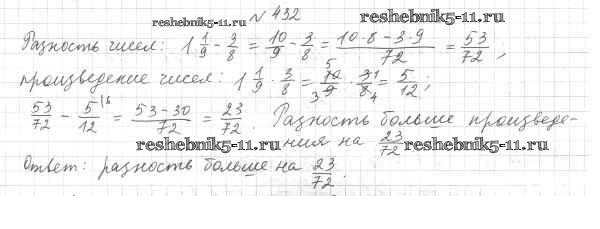 reshebnik5-11.ru № 432 reshebnik5-11.ru
Разность чисел: 1 1/9 - 3/8 = 10/9 - 3/8 = (10·8-3·9)/72 = 53/72 ;
произведение чисел: 1 1/9 · 3/8 = 10/9 · 3/8 = 5/12 ;
53/72 - 5/12 = (53-30)/72 = 23/72 . Разность больше произведе-
ния на 23/72
reshebnik5-11.ru reshebnik5-11.ru
Ответ: разность больше на 23/72 .